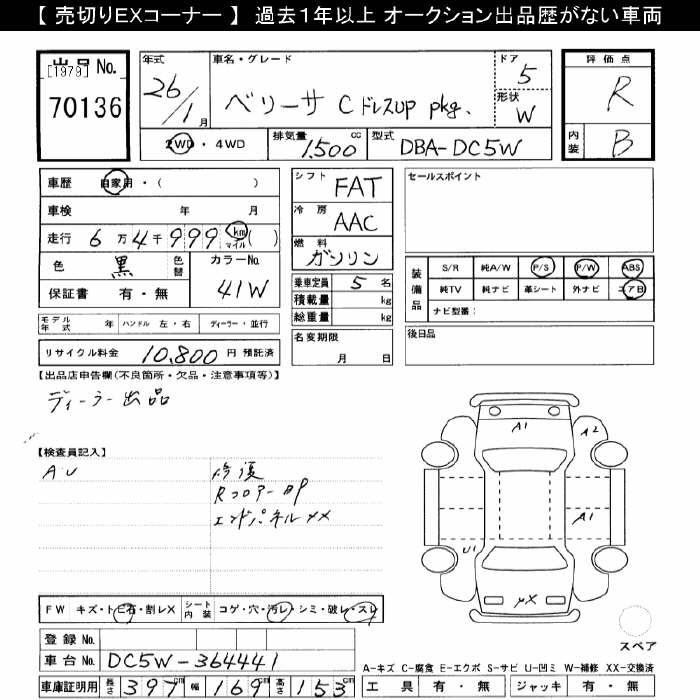 【 売切りEXコーナー 】 過去1年以上 オークション出品歴がない車両
出品 No.
[1979]
70136
年式
26/1月
車名・グレード
ベリーサ C ドレスUP pkg.
ドア
5
形状
W
評価点
R
内装
B
2WD・4WD
排気量
1,500 cc
型式
DBA-DC5W
車歴 自家用・( )
車検 年 月
走行 6万4千999 km マイル ( )
色 黒 色替
カラーNo.
41W
保証書 有・無
シフト FAT
冷房 AAC
燃料 ガソリン
乗車定員 5 名
積載量 kg
総重量 kg
名変期限
月 日
セールスポイント
装備品
S/R 純A/W P/S P/W ABS
純TV 純ナビ 革シート 外ナビ エアB
ナビ型番:
後日品
モデル年式 年 ハンドル 左・右 ディーラー・並行
リサイクル料金 10,800 円 預託済
【出品店申告欄(不良箇所・欠品・注意事項等)】
ディーラー出品
【検査員記入】
AU
修復
Rフロアー
エンドパネルXX
A1
A2
A1
U1
FW キズ・トビ石・割レX
シート内装 コゲ・穴・汚レ・シミ・破レ・スレ
登録 No.
車台 No. DC5W-364441
車庫証明用 長さ 397cm 幅 169cm 高さ 153cm
スペア
A-キズ C-腐食 E-エクボ S-サビ U-凹ミ W-補修 XX-交換済
工具 有・無 ジャッキ 有・無